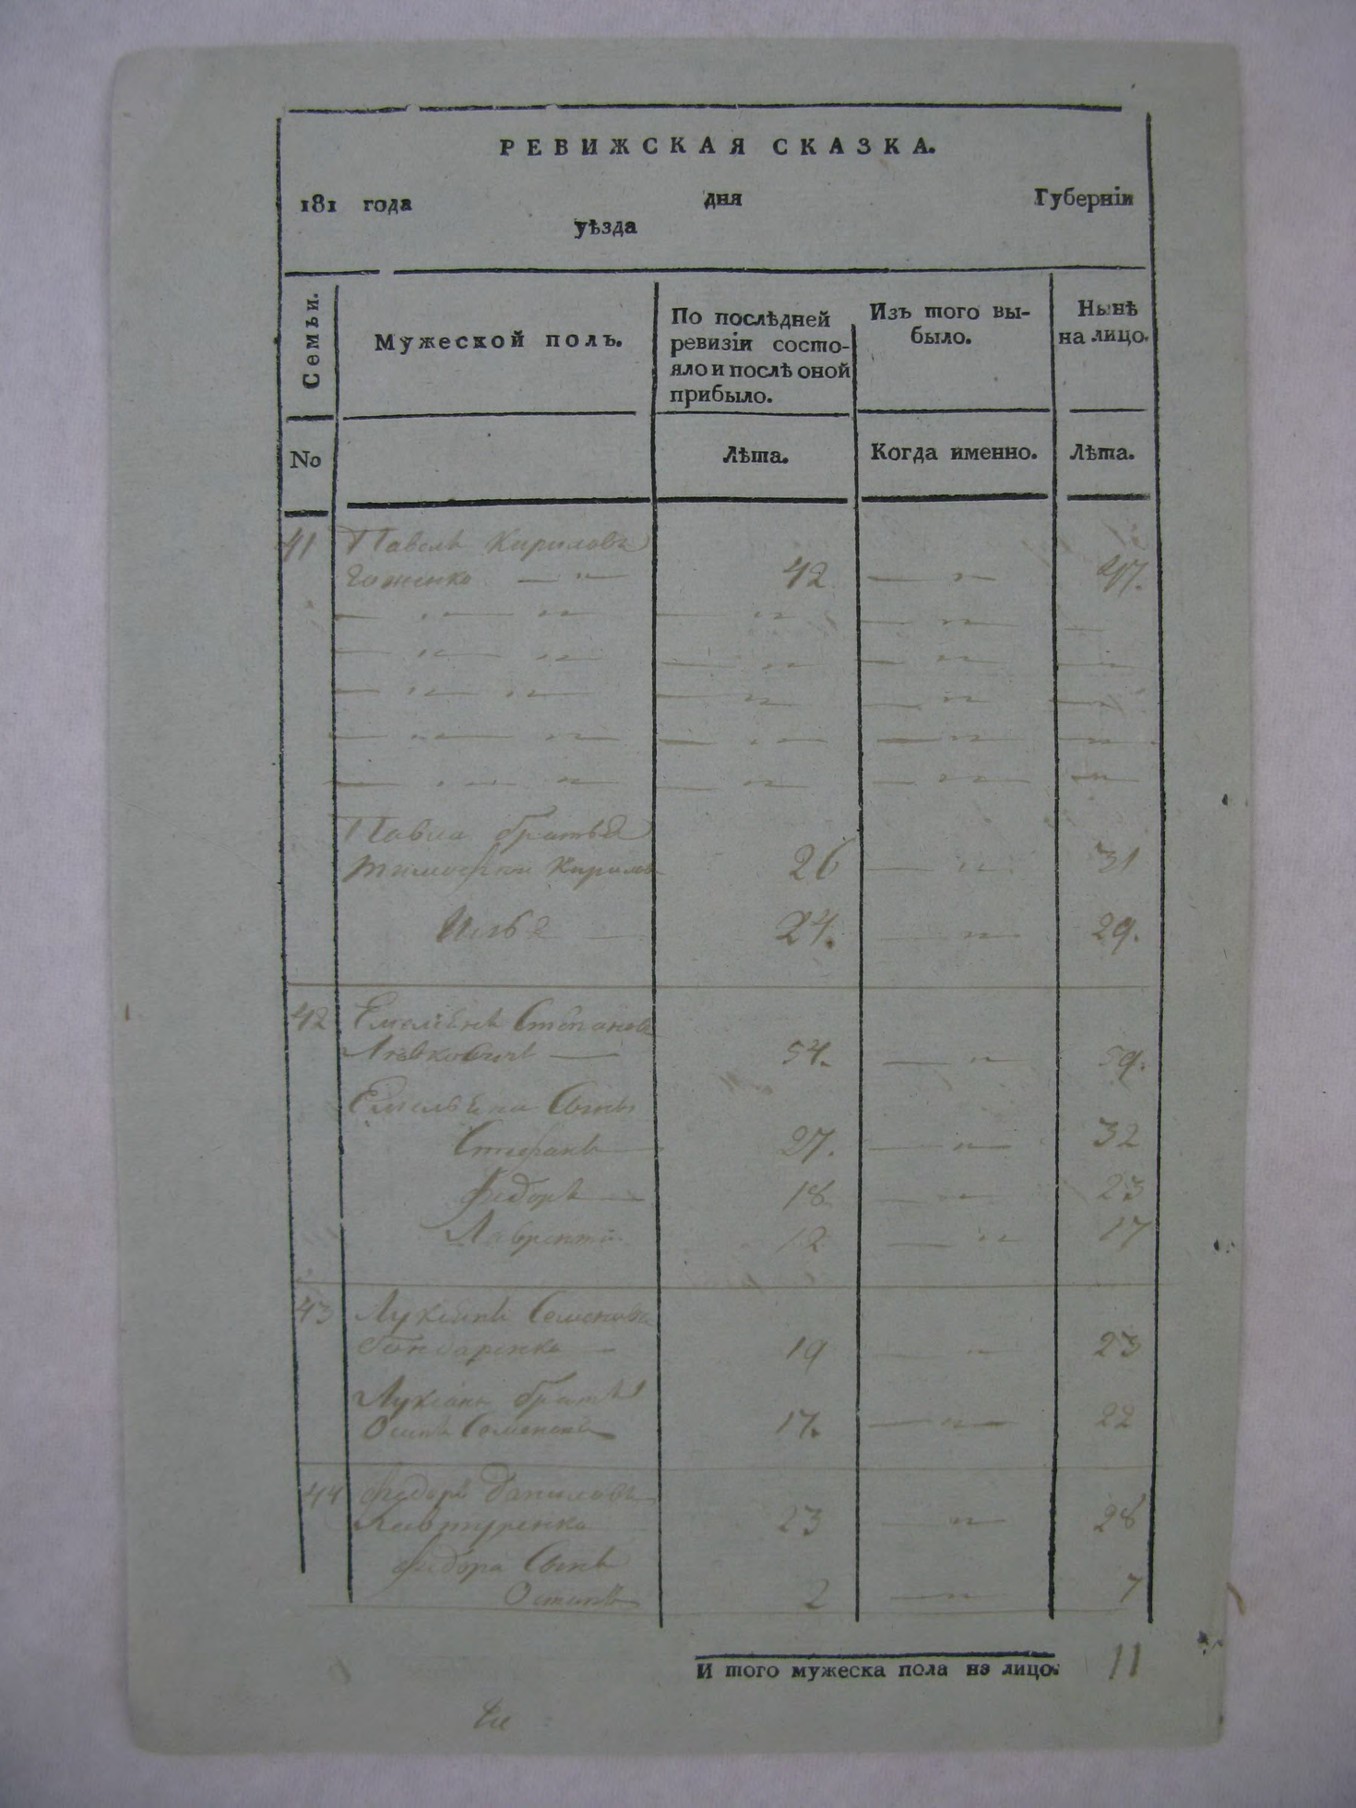 РЕВИЖСКАЯ СКАЗКА.
181 года дня Губерніи
уѣзда
Семьи.
Мужеской полъ.
По послѣдней ревизіи состояло и послѣ оной прибыло.
Изъ того выбыло.
Нынѣ на лицо.
No
Лѣта.
Когда именно.
Лѣта.
41 Павелъ Кириловъ
42 — " — 47.
Павла братья
Тимофей Кирилов 26 — " — 31
Илья — 24. — " — 29.
42 Емельянъ Степановъ
54. — " — 59.
Емельяна Сынъ
Стефанъ — 27. — " — 32
Федоръ — 18 — " — 23
Лаврентій 12 — " — 17
43 Лукьянъ Семеновъ
Бондаренко — 19 — " — 23
Лукьяна братъ
Осипъ Семеновъ 17. — " — 22
44 Федоръ Даниловъ
23 — " — 28
Федора Сынъ
Остапъ 2 — " — 7
И того мужеска пола на лицо. 11